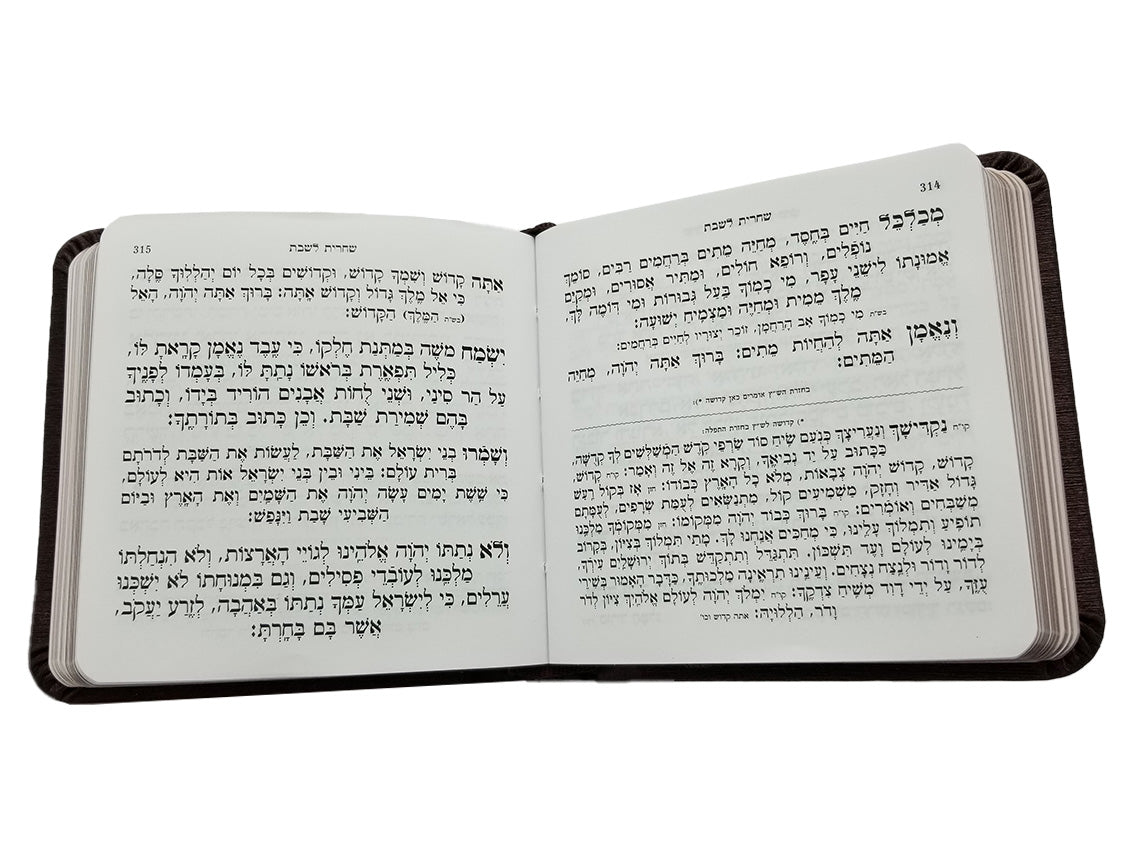 314
שחרית לשבת
מְכַלְכֵּל חַיִּים בְּחֶסֶד, מְחַיֵּה מֵתִים בְּרַחֲמִים רַבִּים, סוֹמֵךְ
נוֹפְלִים, וְרוֹפֵא חוֹלִים, וּמַתִּיר אֲסוּרִים, וּמְקַיֵּם
אֱמוּנָתוֹ לִישֵׁנֵי עָפָר, מִי כָמוֹךָ בַּעַל גְּבוּרוֹת וּמִי דוֹמֶה לָּךְ,
מֶלֶךְ מֵמִית וּמְחַיֶּה וּמַצְמִיחַ יְשׁוּעָה:
בש"ת מִי כָמוֹךָ אַב הָרַחֲמָן, זוֹכֵר יְצוּרָיו לְחַיִּים בְּרַחֲמִים:
וְנֶאֱמָן אַתָּה לְהַחֲיוֹת מֵתִים: בָּרוּךְ אַתָּה יְהֹוָה, מְחַיֵּה
הַמֵּתִים:
בחזרת הש"ץ אומרים כאן קדושה *):
*) קדושה לש"ץ בחזרת התפלה:
קו"ח נַקְדִּישָׁךְ וְנַעֲרִיצָךְ כְּנֹעַם שִׂיחַ סוֹד שַׂרְפֵי קֹדֶשׁ הַמְשַׁלְּשִׁים לְךָ קְדֻשָּׁה,
כַּכָּתוּב עַל יַד נְבִיאֶךָ, וְקָרָא זֶה אֶל זֶה וְאָמַר: קו"ח קָדוֹשׁ,
קָדוֹשׁ, קָדוֹשׁ יְהֹוָה צְבָאוֹת, מְלֹא כָל הָאָרֶץ כְּבוֹדוֹ: חזן אָז בְּקוֹל רַעַשׁ
גָּדוֹל אַדִּיר וְחָזָק, מַשְׁמִיעִים קוֹל, מִתְנַשְּׂאִים לְעֻמַּת שְׂרָפִים, לְעֻמָּתָם
מְשַׁבְּחִים וְאוֹמְרִים: קו"ח בָּרוּךְ כְּבוֹד יְהֹוָה מִמְּקוֹמוֹ: חזן מִמְּקוֹמְךָ מַלְכֵּנוּ
תוֹפִיעַ וְתִמְלוֹךְ עָלֵינוּ, כִּי מְחַכִּים אֲנַחְנוּ לָךְ, מָתַי תִּמְלוֹךְ בְּצִיּוֹן, בְּקָרוֹב
בְּיָמֵינוּ לְעוֹלָם וָעֶד תִּשְׁכּוֹן. תִּתְגַּדֵּל וְתִתְקַדֵּשׁ בְּתוֹךְ יְרוּשָׁלַיִם עִירְךָ,
לְדוֹר וָדוֹר וּלְנֵצַח נְצָחִים. וְעֵינֵינוּ תִרְאֶינָה מַלְכוּתֶךָ, כַּדָּבָר הָאָמוּר בְּשִׁירֵי
עֻזֶּךָ, עַל יְדֵי דָוִד מְשִׁיחַ צִדְקֶךָ: קו"ח יִמְלֹךְ יְהֹוָה לְעוֹלָם אֱלֹהַיִךְ צִיּוֹן לְדֹר
וָדֹר, הַלְלוּיָהּ: אתה קדוש וכו'
315
שחרית לשבת
אַתָּה קָדוֹשׁ וְשִׁמְךָ קָדוֹשׁ, וּקְדוֹשִׁים בְּכָל יוֹם יְהַלְלוּךָ סֶּלָה,
כִּי אֵל מֶלֶךְ גָּדוֹל וְקָדוֹשׁ אָתָּה: בָּרוּךְ אַתָּה יְהֹוָה, הָאֵל
(בש"ת הַמֶּלֶךְ) הַקָּדוֹשׁ:
יִשְׂמַח מֹשֶׁה בְּמַתְּנַת חֶלְקוֹ, כִּי עֶבֶד נֶאֱמָן קָרָאתָ לּוֹ,
כְּלִיל תִּפְאֶרֶת בְּרֹאשׁוֹ נָתַתָּ לּוֹ, בְּעָמְדוֹ לְפָנֶיךָ
עַל הַר סִינַי, וּשְׁנֵי לֻחוֹת אֲבָנִים הוֹרִיד בְּיָדוֹ, וְכָתוּב
בָּהֶם שְׁמִירַת שַׁבָּת. וְכֵן כָּתוּב בְּתוֹרָתֶךָ:
וְשָׁמְרוּ בְנֵי יִשְׂרָאֵל אֶת הַשַּׁבָּת, לַעֲשׂוֹת אֶת הַשַּׁבָּת לְדֹרֹתָם
בְּרִית עוֹלָם: בֵּינִי וּבֵין בְּנֵי יִשְׂרָאֵל אוֹת הִיא לְעוֹלָם,
כִּי שֵׁשֶׁת יָמִים עָשָׂה יְהֹוָה אֶת הַשָּׁמַיִם וְאֶת הָאָרֶץ וּבַיּוֹם
הַשְּׁבִיעִי שָׁבַת וַיִּנָּפַשׁ:
וְלֹא נְתַתּוֹ יְהֹוָה אֱלֹהֵינוּ לְגוֹיֵי הָאֲרָצוֹת, וְלֹא הִנְחַלְתּוֹ
מַלְכֵּנוּ לְעוֹבְדֵי פְסִילִים, וְגַם בִּמְנוּחָתוֹ לֹא יִשְׁכְּנוּ
עֲרֵלִים, כִּי לְיִשְׂרָאֵל עַמְּךָ נְתַתּוֹ בְּאַהֲבָה, לְזֶרַע יַעֲקֹב,
אֲשֶׁר בָּם בָּחָרְתָּ: